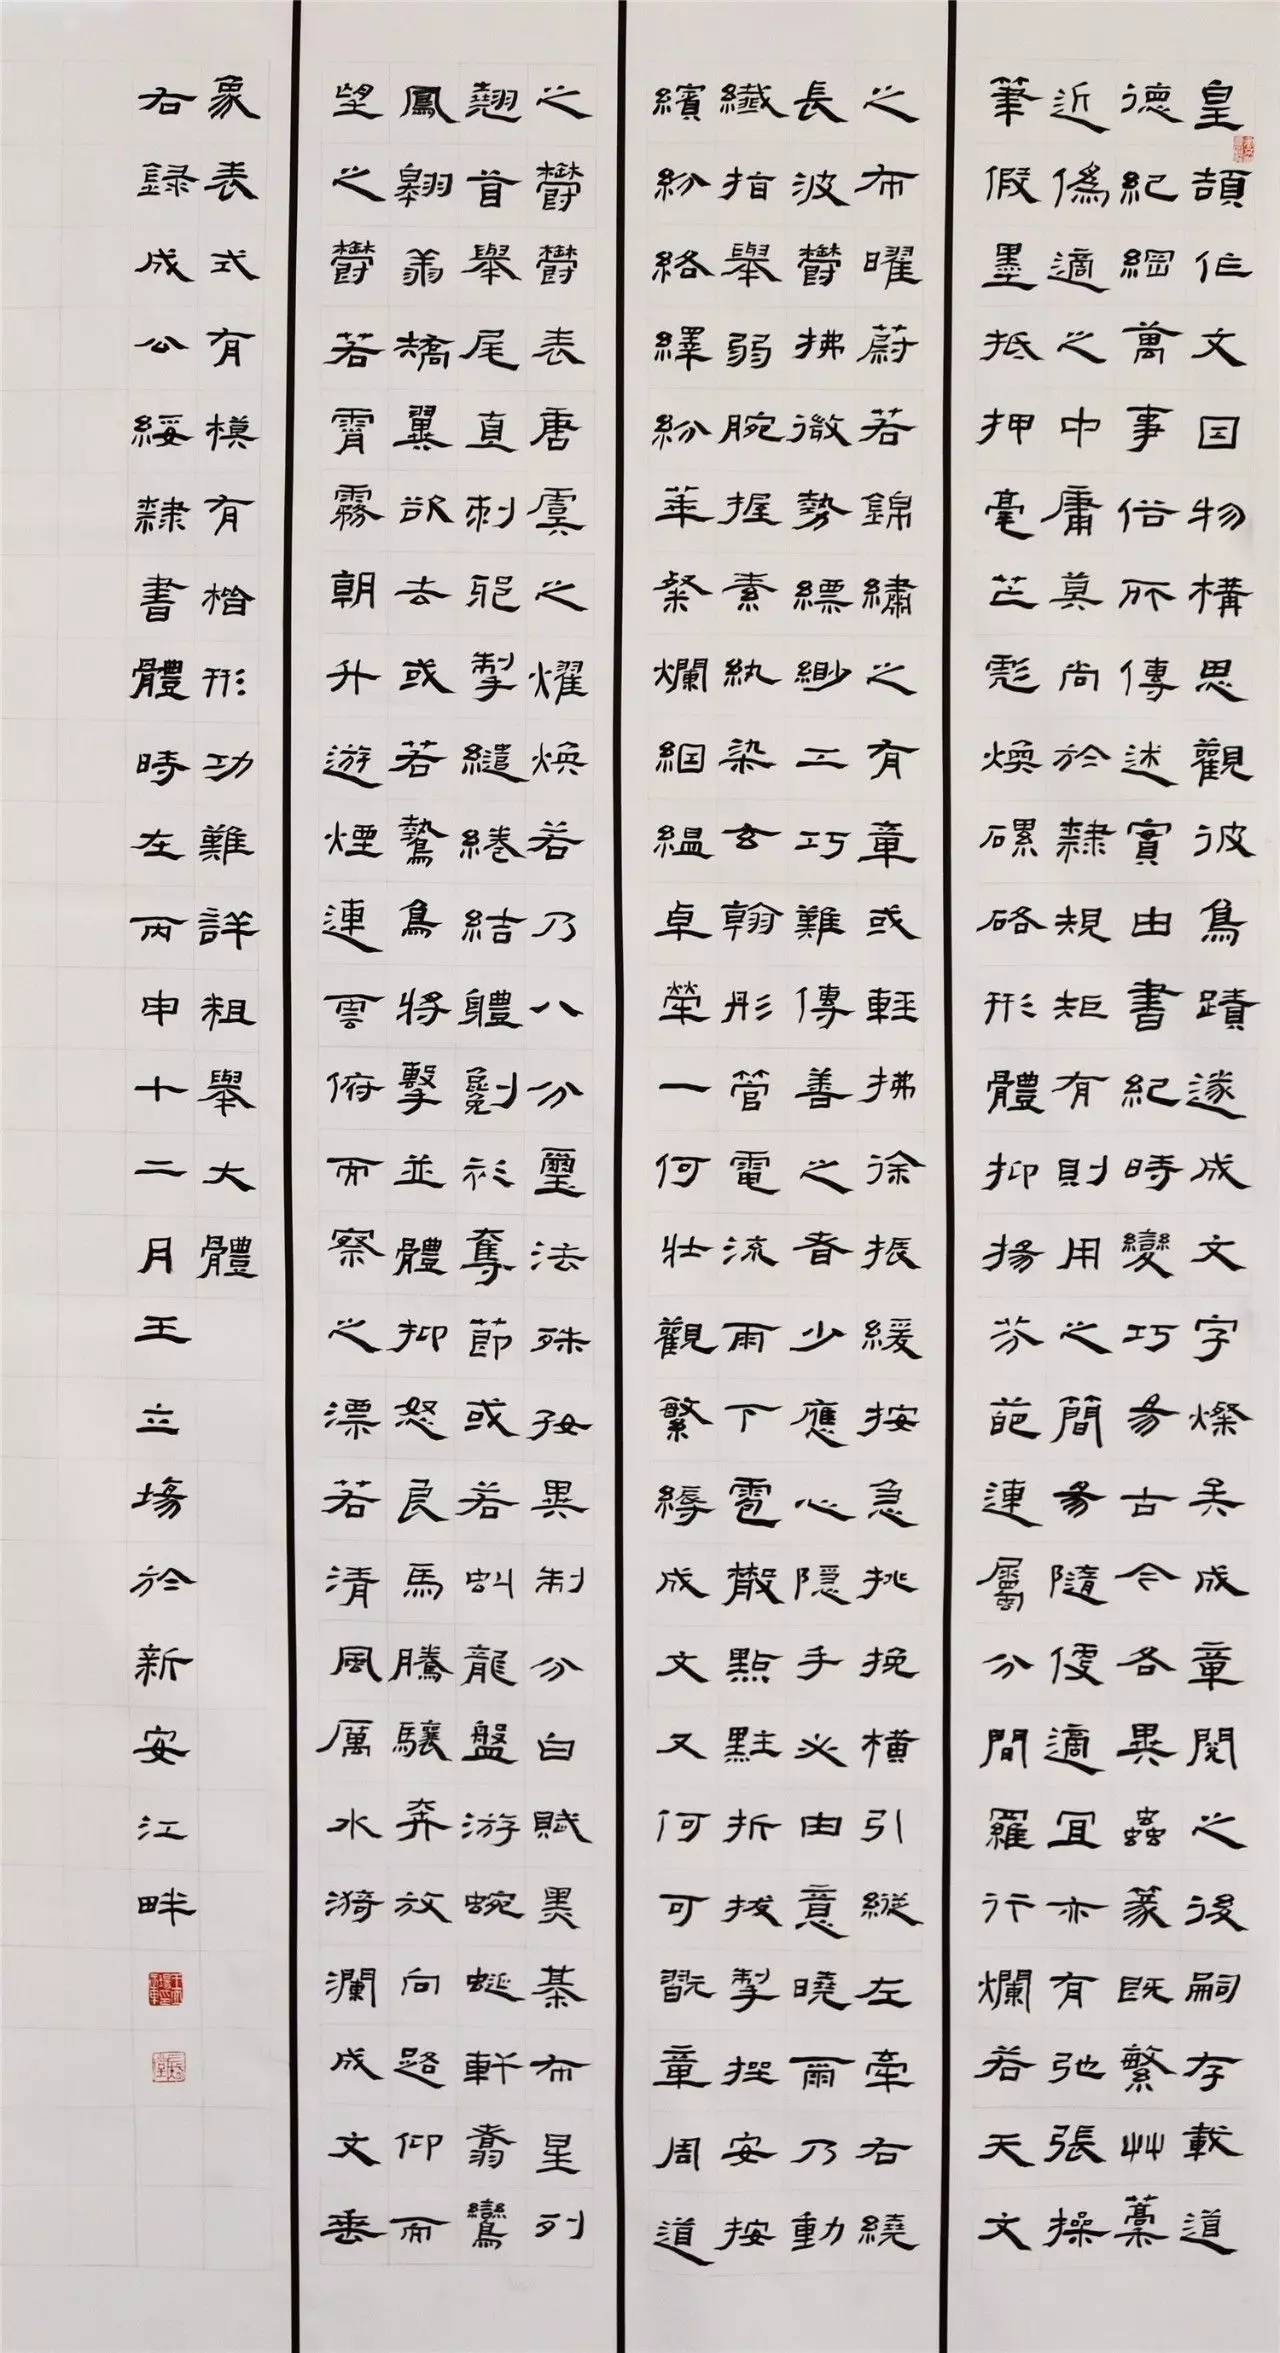 皇頡作文因物構思觀彼鳥蹟遂成文字燦矣成章閱之後嗣存載道
德紀綱萬事俗所傳述實由書紀時變巧易古今各異蟲篆既繁艸藁
近偽適之中庸莫尚於隸規矩有則用之簡易隨便適宜亦有弛張操
筆假墨抵押毫芒彪煥磥硌形體抑揚芬葩連屬分間羅行爛若天文
之布曜蔚若錦繡之有章或輕拂徐振緩按急挑挽橫引縱左牽右繞
長波鬱拂微勢縹緲工巧難傳善之者少應心隱手必由意曉爾乃動
纖指舉弱腕握素紈染玄翰彤管電流雨下雹散點黈折拔掣挫安按
繽紛絡繹紛華粲爛絪縕卓犖一何壯觀繁縟成文又何可翫章周道
之鬱鬱表唐虞之燿煥若乃八分璽法殊好異制分白賦黑棊布星列
翹首舉尾直刺邪掣繾綣結體劖衫奪節或若虯龍盤游蜿蜒軒翥鸞
鳳翱翔矯翼欲去或若鷙鳥將擊並體抑怒良馬騰驤奔放向路仰而
望之鬱若霄霧朝升遊煙連雲俯而察之漂若清風厲水漪瀾成文垂
象表式有模有楷形功難詳粗舉大體
右錄成公綏隸書體時在丙申十二月王立場於新安江畔